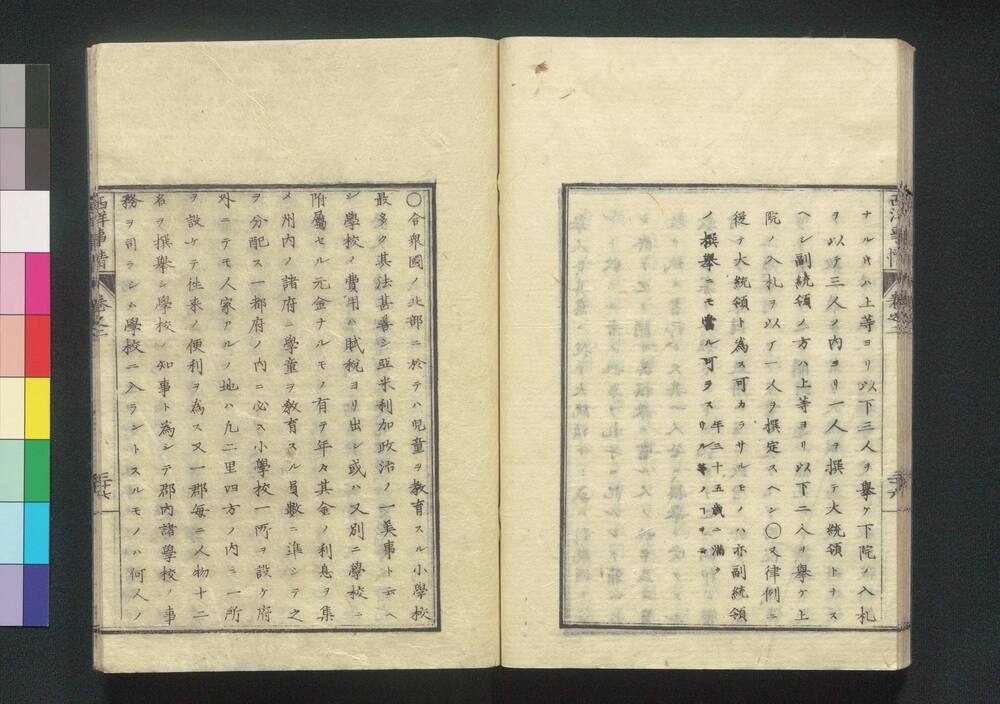 ナルキハ上等ヨリ以下三人ヲ擧ケ下院ノ入札
ヲ以テ三人ノ内ヨリ一人ヲ撰テ大統領トナス
ヘシ副統領ノ方ハ上等ヨリ以下二人ヲ擧ケ上
院ノ入札ヲ以テ一人ヲ撰定スヘシ〇又律例ニ
從テ大統領ト為ス可カラサルモノハ亦副統領
ノ撰擧ニモ當ル可ラス
年三十五歳ニ滿タ
サル等ノ
西洋事情
卷之二
二十六
〇合衆國ノ北部ニ於テハ兒童ヲ教育スル小學校
最多ク其法甚善シ亞米利加政治ノ一美事ト云ヘ
シ學校ノ費用ハ賦税ヨリ出シ或ハ又別ニ學校ニ
附屬セル元金ナルモノ有テ年々其金ノ利息ヲ集
メ州内ノ諸府ニ學童ヲ教育スル員數ニ準シテ之
ヲ分配ス一都府ノ内ニ必ス小學校一所ヲ設ケ府
外ニテモ人家アルノ地ハ凡二里四方ノ内ニ一所
ヲ設ケテ往来ノ便利ヲ為ス又一郡毎ニ人物十二
名ヲ撰擧シ學校ノ知事ト為シテ郡内諸學校ノ事
務ヲ司ラシム學校ニ入ラントスルモノハ何人ノ
西洋事情
卷之二
二十六